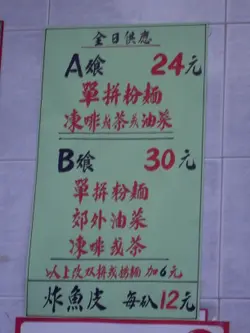 全日供應
A餐 24元
單拼粉麵
凍啡或茶或油菜
B餐 30元
單拼粉麵
郊外油菜
凍啡或茶
以上改双拼或撈麵 加6元
炸魚皮 每趴12元